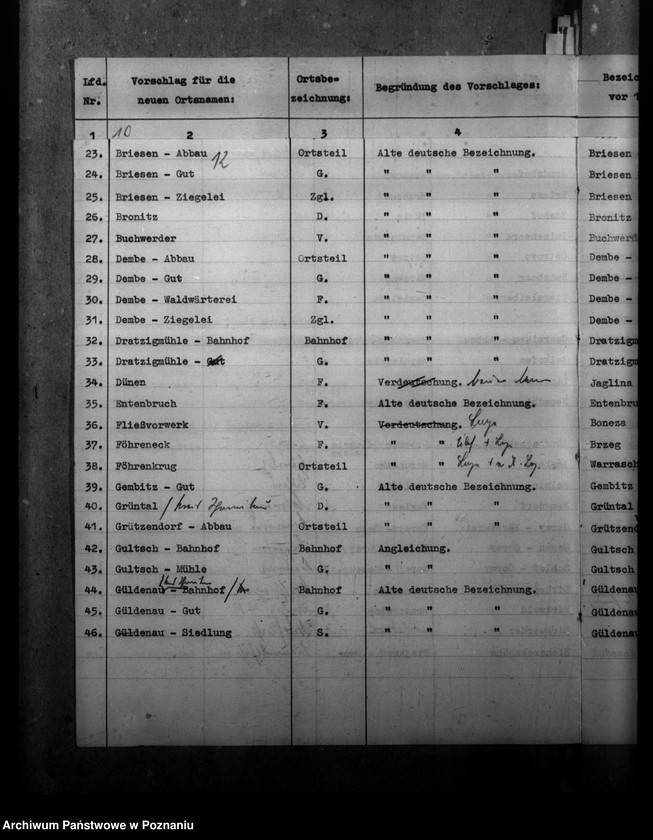 Lfd. Nr. Vorschlag für die neuen Ortsnamen: Ortsbe- zeichnung: Begründung des Vorschlages: Bezeic vor 1
1 10 2 3 4
23. Briesen - Abbau 12 Ortsteil Alte deutsche Bezeichnung. Briesen
24. Briesen - Gut G. " " " Briesen
25. Briesen - Ziegelei Zgl. " " " Briesen
26. Bronitz D. " " " Bronitz
27. Buchwerder V. " " " Buchwerd
28. Dembe - Abbau Ortsteil " " " Dembe -
29. Dembe - Gut G. " " " Dembe -
30. Dembe - Waldwärterei F. " " " Dembe -
31. Dembe - Ziegelei Zgl. " " " Dembe -
32. Dratzigmühle - Bahnhof Bahnhof " " " Dratzigm
33. Dratzigmühle - Gut G. " " " Dratzigm
34. Dünen F. Verdeutschung. Jaglina
35. Entenbruch F. Alte deutsche Bezeichnung. Entenbru
36. Fließvorwerk V. Verdeutschung. Boneza
37. Föhreneck F. " " Brzeg
38. Föhrenkrug Ortsteil " " Warrasch
39. Gembitz - Gut G. Alte deutsche Bezeichnung. Gembitz
40. Grüntal D. " " " Grüntal
41. Grützendorf - Abbau Ortsteil " " " Grützend
42. Gultsch - Bahnhof Bahnhof Angleichung. Gultsch
43. Gultsch - Mühle G. " " Gultsch
44. Güldenau - Bahnhof Bahnhof Alte deutsche Bezeichnung. Güldenau
45. Güldenau - Gut G. " " " Güldenau
46. Güldenau - Siedlung S. " " " Güldenau
Archiwum Państwowe w Poznaniu